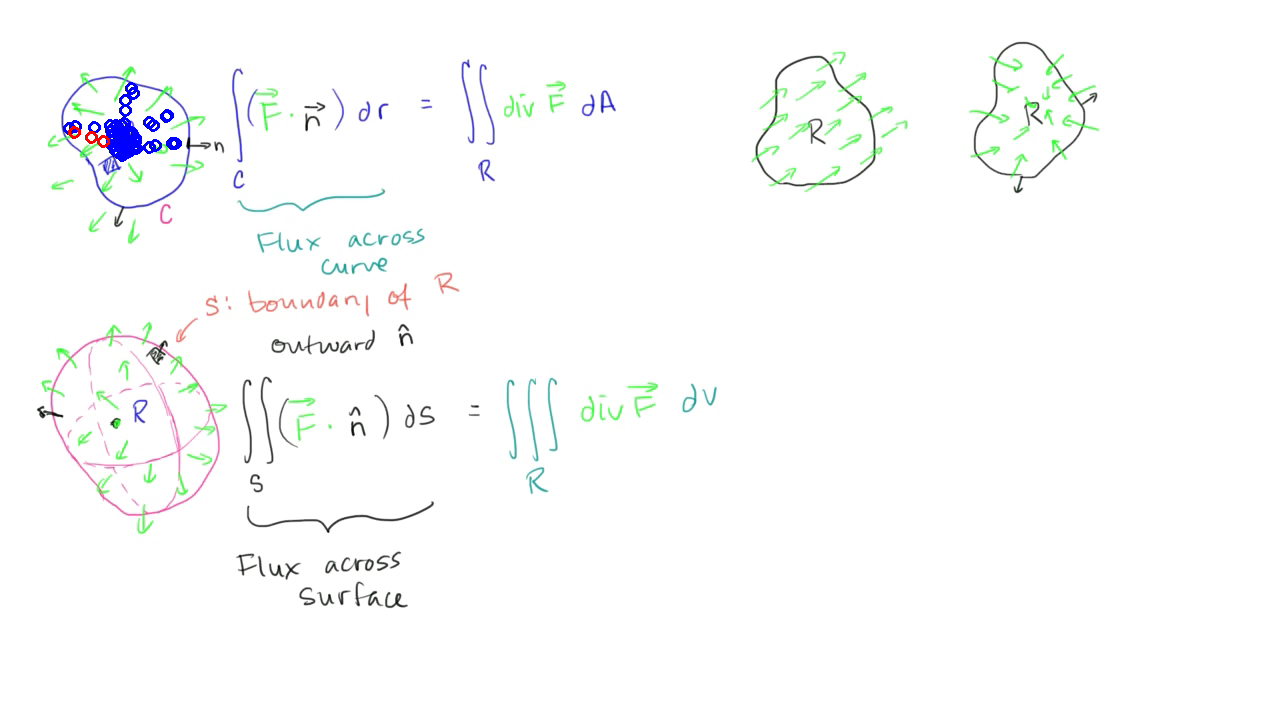 ∫_C (F⃗ · n⃗) dr = ∬_R div F⃗ dA
n
C
Flux across
curve
R
R
S: boundary of R
outward n̂
R
∬_S (F⃗ · n̂) dS = ∭_R div F⃗ dV
Flux across
surface